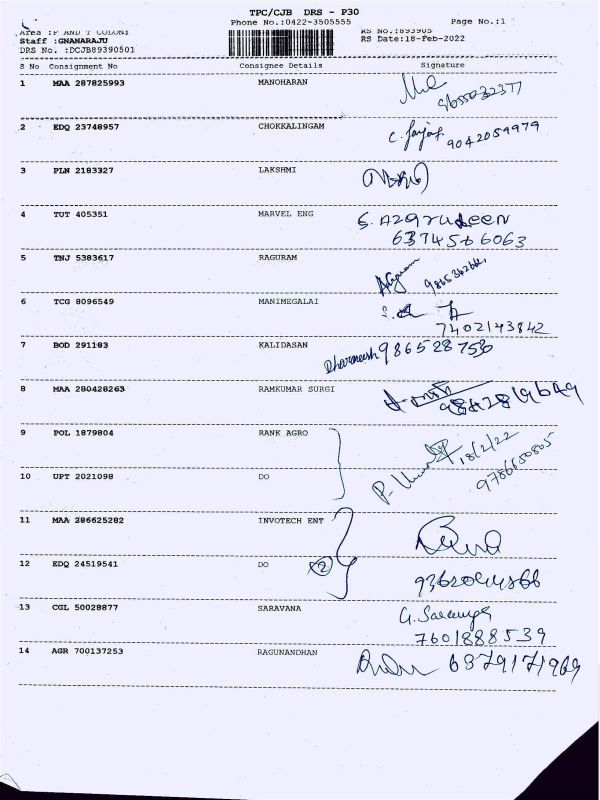 TPC/CJB DRS - P30
Phone No.:0422-3505555 Page No.:1
Area :P AND T COLONY RS No.:1893905
Staff :GNANARAJU RS Date:18-Feb-2022
DRS No. :DCJB89390501
S No Consignment No Consignee Details Signature
1 MAA 287825993 MANOHARAN
2 EDQ 23748957 CHOKKALINGAM 9042059979
3 PLN 2183327 LAKSHMI
4 TUT 405351 MARVEL ENG S. Azarudeen
6374566063
5 TNJ 5383617 RAGURAM
6 TCG 8096549 MANIMEGALAI
7402143842
7 BOD 291183 KALIDASAN Dharaneesh 986528 753
8 MAA 280428263 RAMKUMAR SURGI 9842819649
9 POL 1879804 RANK AGRO 18/2/22
10 UPT 2021098 DO 9786650805
11 MAA 286625282 INVOTECH ENT
12 EDQ 24519541 DO 2
13 CGL 50028877 SARAVANA
7601888539
14 AGR 700137253 RAGUNANDHAN 6379171969